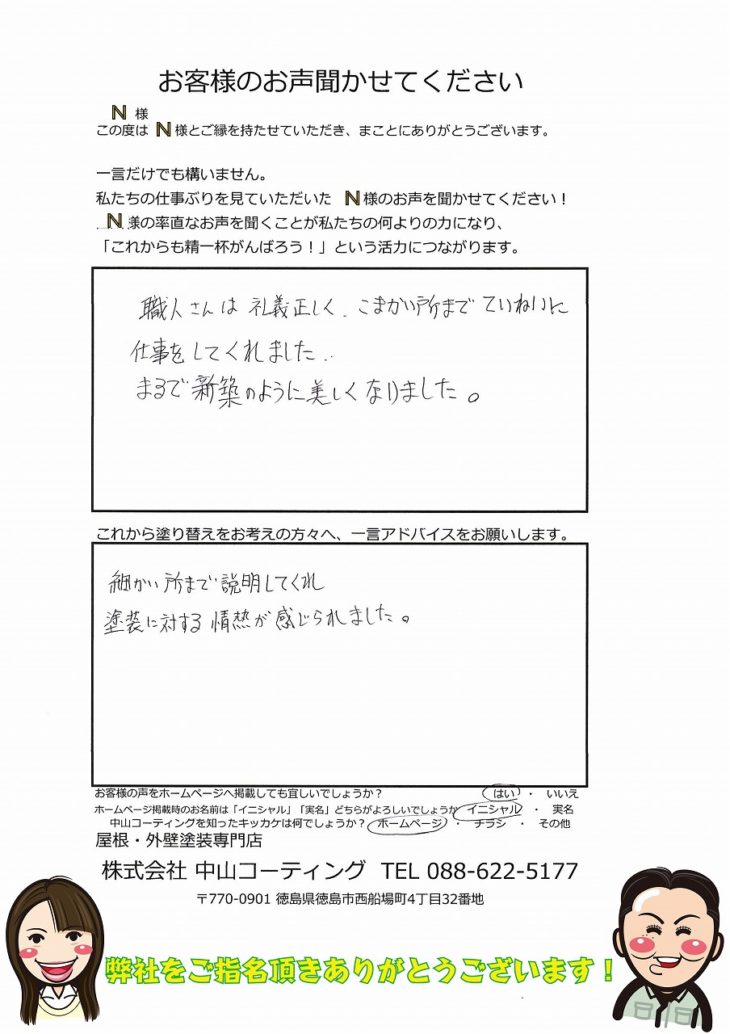 お客様のお声聞かせてください
N 様
この度は N様とご縁を持たせていただき、まことにありがとうございます。
一言だけでも構いません。
私たちの仕事ぶりを見ていただいた N様のお声を聞かせてください!
N 様の率直なお声を聞くことが私たちの何よりの力になり、
「これからも精一杯がんばろう!」という活力につながります。
職人さんは礼義正しく、こまかい所までていねいに
仕事をしてくれました。
まるで新築のように美しくなりました。
これから塗り替えをお考えの方々へ、一言アドバイスをお願いします。
細かい所まで説明してくれ
塗装に対する情熱が感じられました。
お客様の声をホームページへ掲載しても宜しいでしょうか? はい ・ いいえ
ホームページ掲載時のお名前は「イニシャル」「実名」どちらがよろしいでしょうか イニシャル ・ 実名
中山コーティングを知ったキッカケは何でしょうか? ホームページ ・ チラシ ・ その他
屋根・外壁塗装専門店
株式会社 中山コーティング TEL 088-622-5177
〒770-0901 徳島県徳島市西船場町4丁目32番地
弊社をご指名頂きありがとうございます!